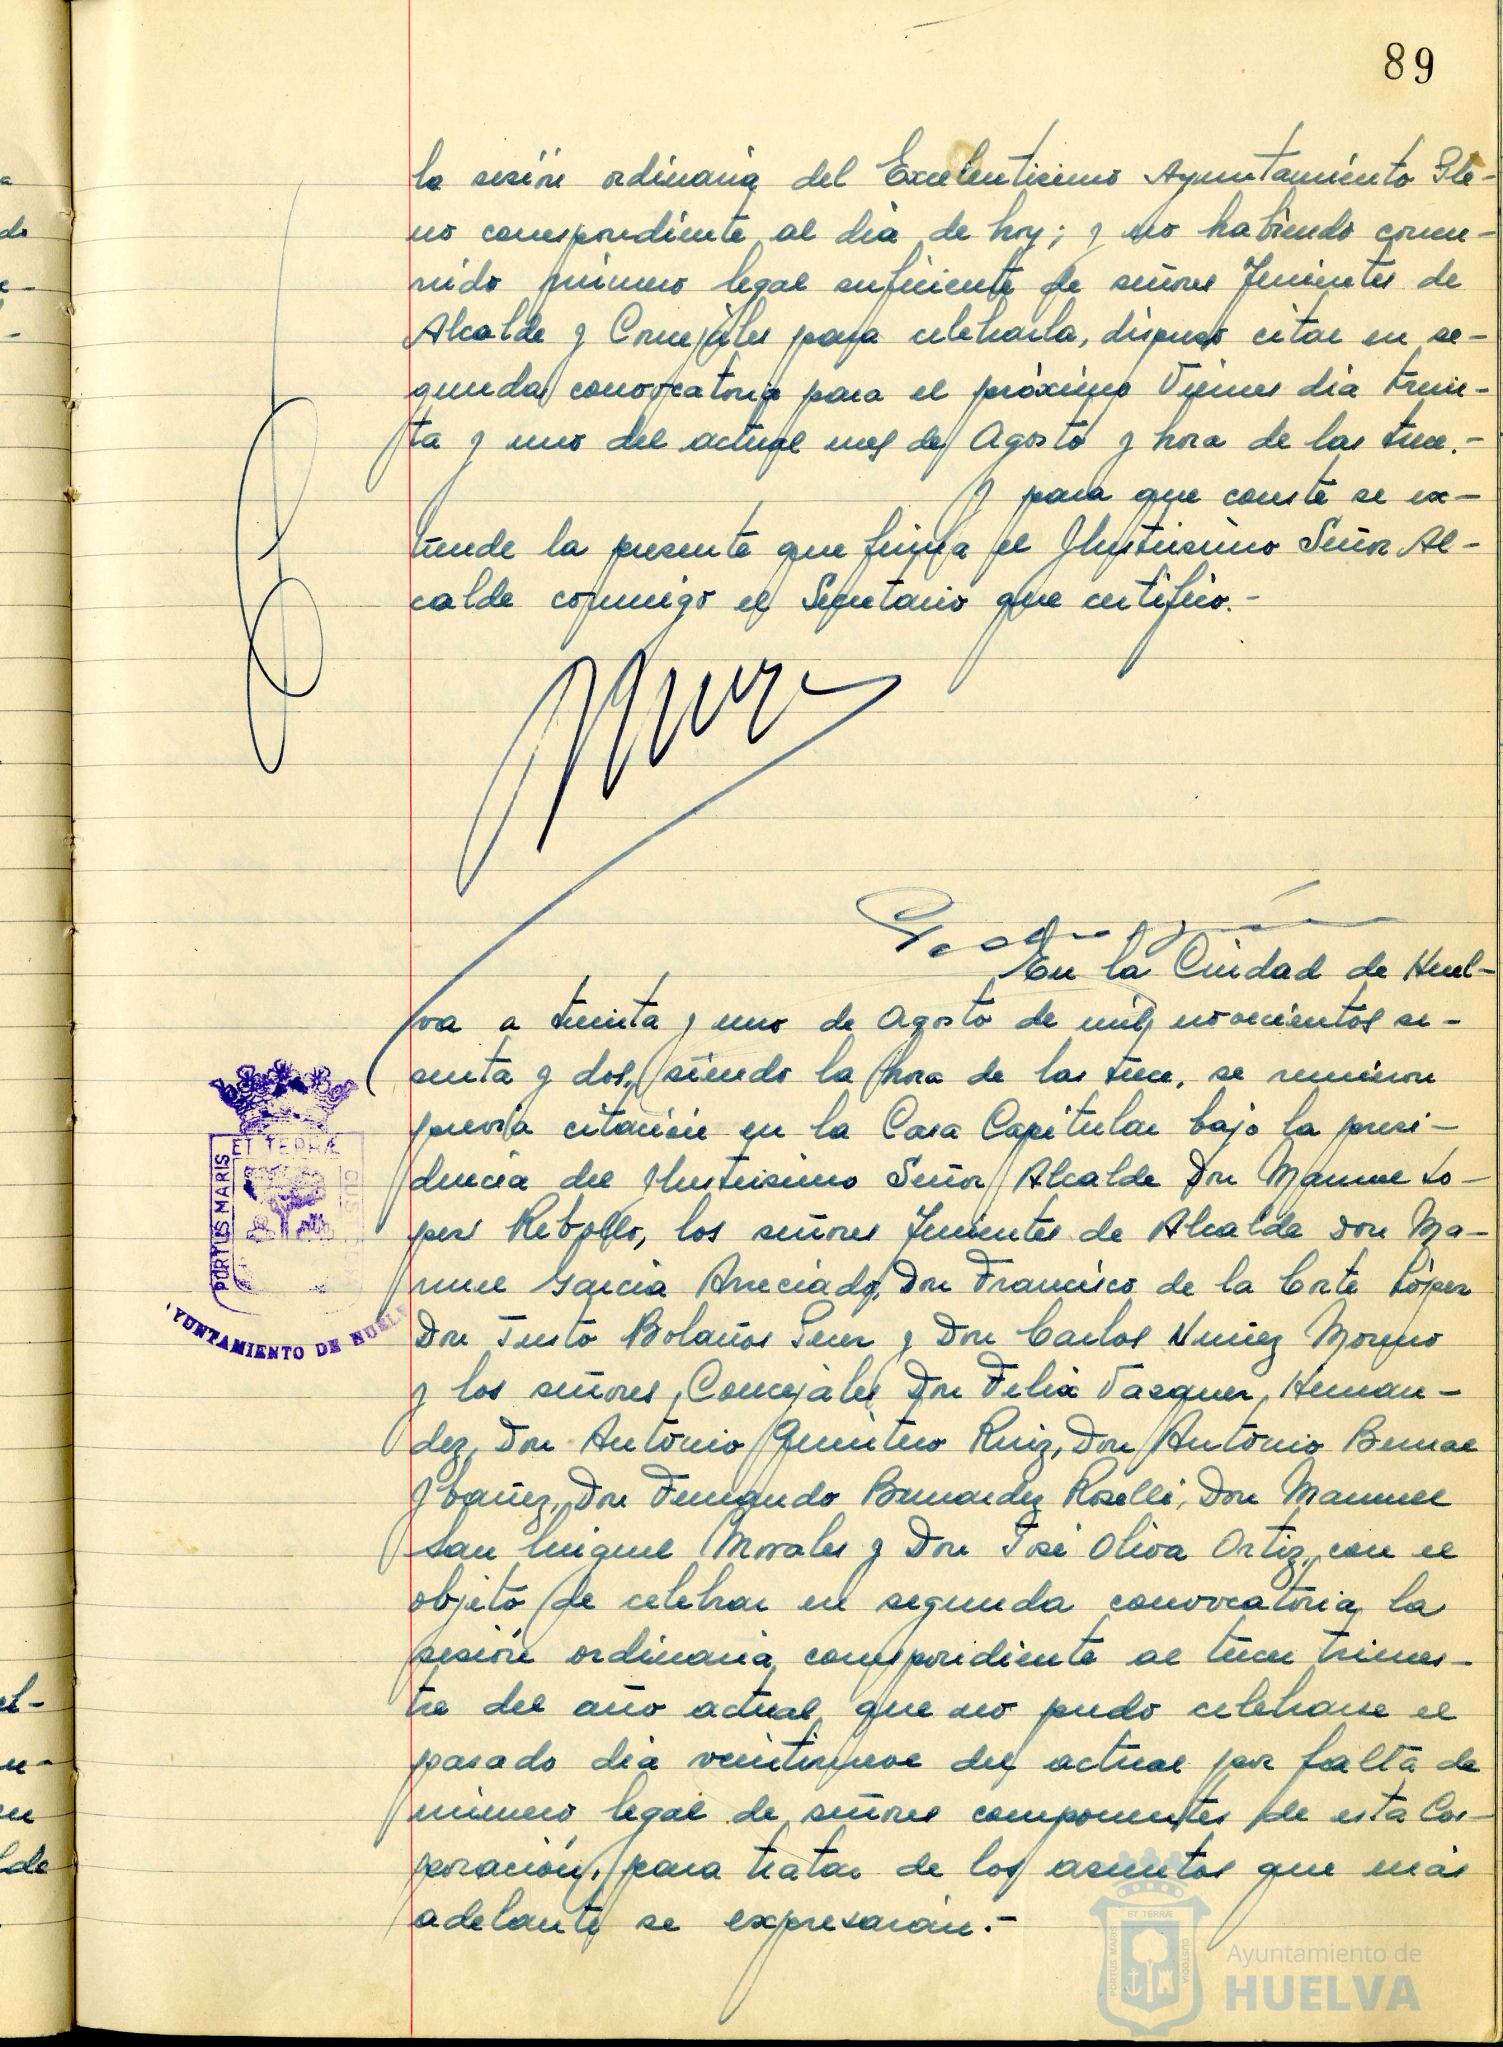 89
la sesión ordinaria del Excelentisimo Ayuntamiento Ple-
no correspondiente al dia de hoy; y no habiendo concu-
rrido número legal suficiente de señores Tenientes de
Alcalde y Concejales para celebrarla, dispuso citar en se-
gunda convocatoria para el próximo Viernes dia trein-
ta y uno del actual mes de Agosto y hora de las trece.-
Y para que conste se ex-
tiende la presente que firma el Ilustrisimo Señor Al-
calde conmigo el Secretario que certifico.-
En la Ciudad de Huel-
va a treinta y uno de Agosto de mil novecientos se-
senta y dos, siendo la hora de las trece, se reunieron
previa citación en la Casa Capitular bajo la presi-
dencia del Ilustrisimo Señor Alcalde Don Manuel Lo-
pez Rebollo, los señores Tenientes de Alcalde Don Ma-
nuel Garcia Arreciado, Don Francisco de la Corte López
Don Justo Bolaños Don Carlos Nuñez Moreno
y los señores Concejales Don Felix Vazquez Hernan-
dez, Don Antonio Quintero Ruiz, Don Antonio Bernal
Ybañez, Don Fernando Bernardez Roselli, Don Manuel
San Miguel Morales y Don José Oliva Ortiz, con el
objeto de celebrar en segunda convocatoria la
sesión ordinaria correspondiente al tercer trimes-
tre del año actual que no pudo celebrarse el
pasado dia veintinueve del actual por falta de
número legal de señores componentes de esta Cor-
poración, para tratar de los asuntos que más
adelante se expresarán.-
ET TERRÆ
PORTUS MARIS
CUS
YUNTAMIENTO DE HUELV
ET TERRÆ
PORTUS MARIS
CUSTODIA
Ayuntamiento de
HUELVA